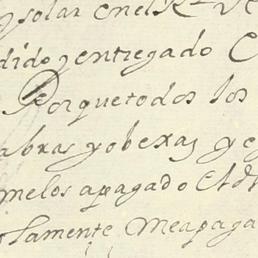 solar en el R.l
dido y entregado
Porque todos los
abras y obexas y
melos a pagado el
lamente me a paga